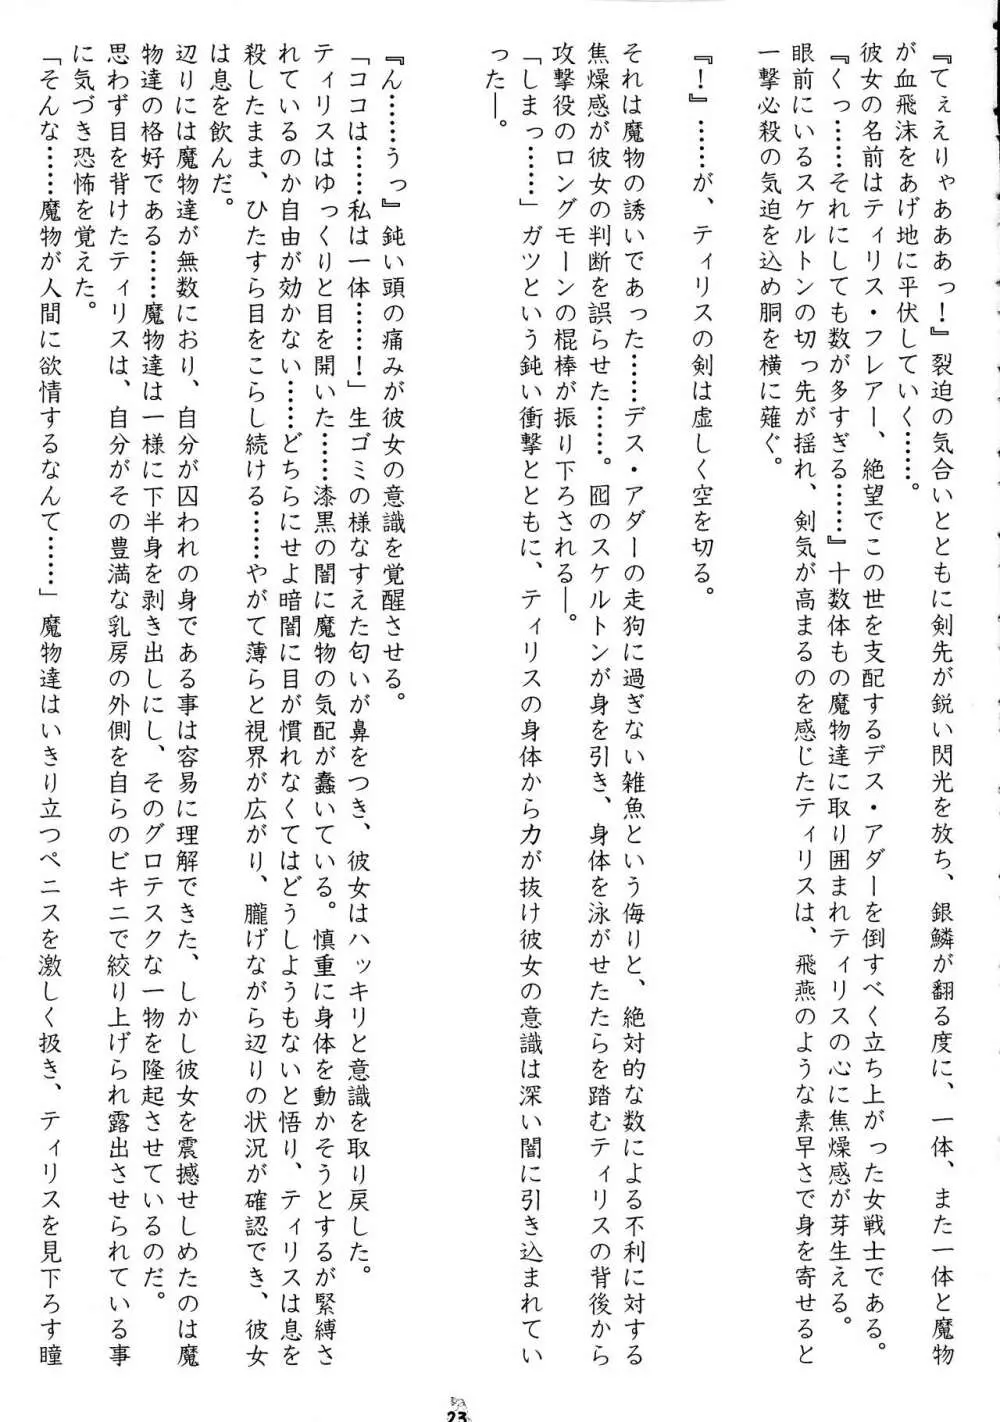 『てぇえりゃあああっ！』裂迫の気合いとともに剣先が鋭い閃光を放ち、銀鱗が翻る度に、一体、また一体と魔物
が血飛沫をあげ地に平伏していく……。
彼女の名前はティリス・フレアー、絶望でこの世を支配するデス・アダーを倒すべく立ち上がった女戦士である。
『くっ……それにしても数が多すぎる……』十数体もの魔物達に取り囲まれティリスの心に焦燥感が芽生える。
眼前にいるスケルトンの切っ先が揺れ、剣気が高まるのを感じたティリスは、飛燕のような素早さで身を寄せると
一撃必殺の気迫を込め胴を横に薙ぐ。
『！』……が、ティリスの剣は虚しく空を切る。
それは魔物の誘いであった……デス・アダーの走狗に過ぎない雑魚という侮りと、絶対的な数による不利に対する
焦燥感が彼女の判断を誤らせた……。囮のスケルトンが身を引き、身体を泳がせたたらを踏むティリスの背後から
攻撃役のロングモーンの棍棒が振り下ろされる―。
「しまっ……」ガツという鈍い衝撃とともに、ティリスの身体から力が抜け彼女の意識は深い闇に引き込まれてい
った―。
『ん……うっ』鈍い頭の痛みが彼女の意識を覚醒させる。
「ココは……私は一体……！」生ゴミの様なすえた匂いが鼻をつき、彼女はハッキリと意識を取り戻した。
ティリスはゆっくりと目を開いた……漆黒の闇に魔物の気配が蠢いている。慎重に身体を動かそうとするが緊縛さ
れているのか自由が効かない……どちらにせよ暗闇に目が慣れなくてはどうしようもないと悟り、ティリスは息を
殺したまま、ひたすら目をこらし続ける……やがて薄らと視界が広がり、朧げながら辺りの状況が確認でき、彼女
は息を飲んだ。
辺りには魔物達が無数におり、自分が囚われの身である事は容易に理解できた、しかし彼女を震撼せしめたのは魔
物達の格好である……魔物達は一様に下半身を剥き出しにし、そのグロテスクな一物を隆起させているのだ。
思わず目を背けたティリスは、自分がその豊満な乳房の外側を自らのビキニで絞り上げられ露出させられている事
に気づき恐怖を覚えた。
「そんな……魔物が人間に欲情するなんて……」魔物達はいきり立つペニスを激しく扱き、ティリスを見下ろす瞳
23